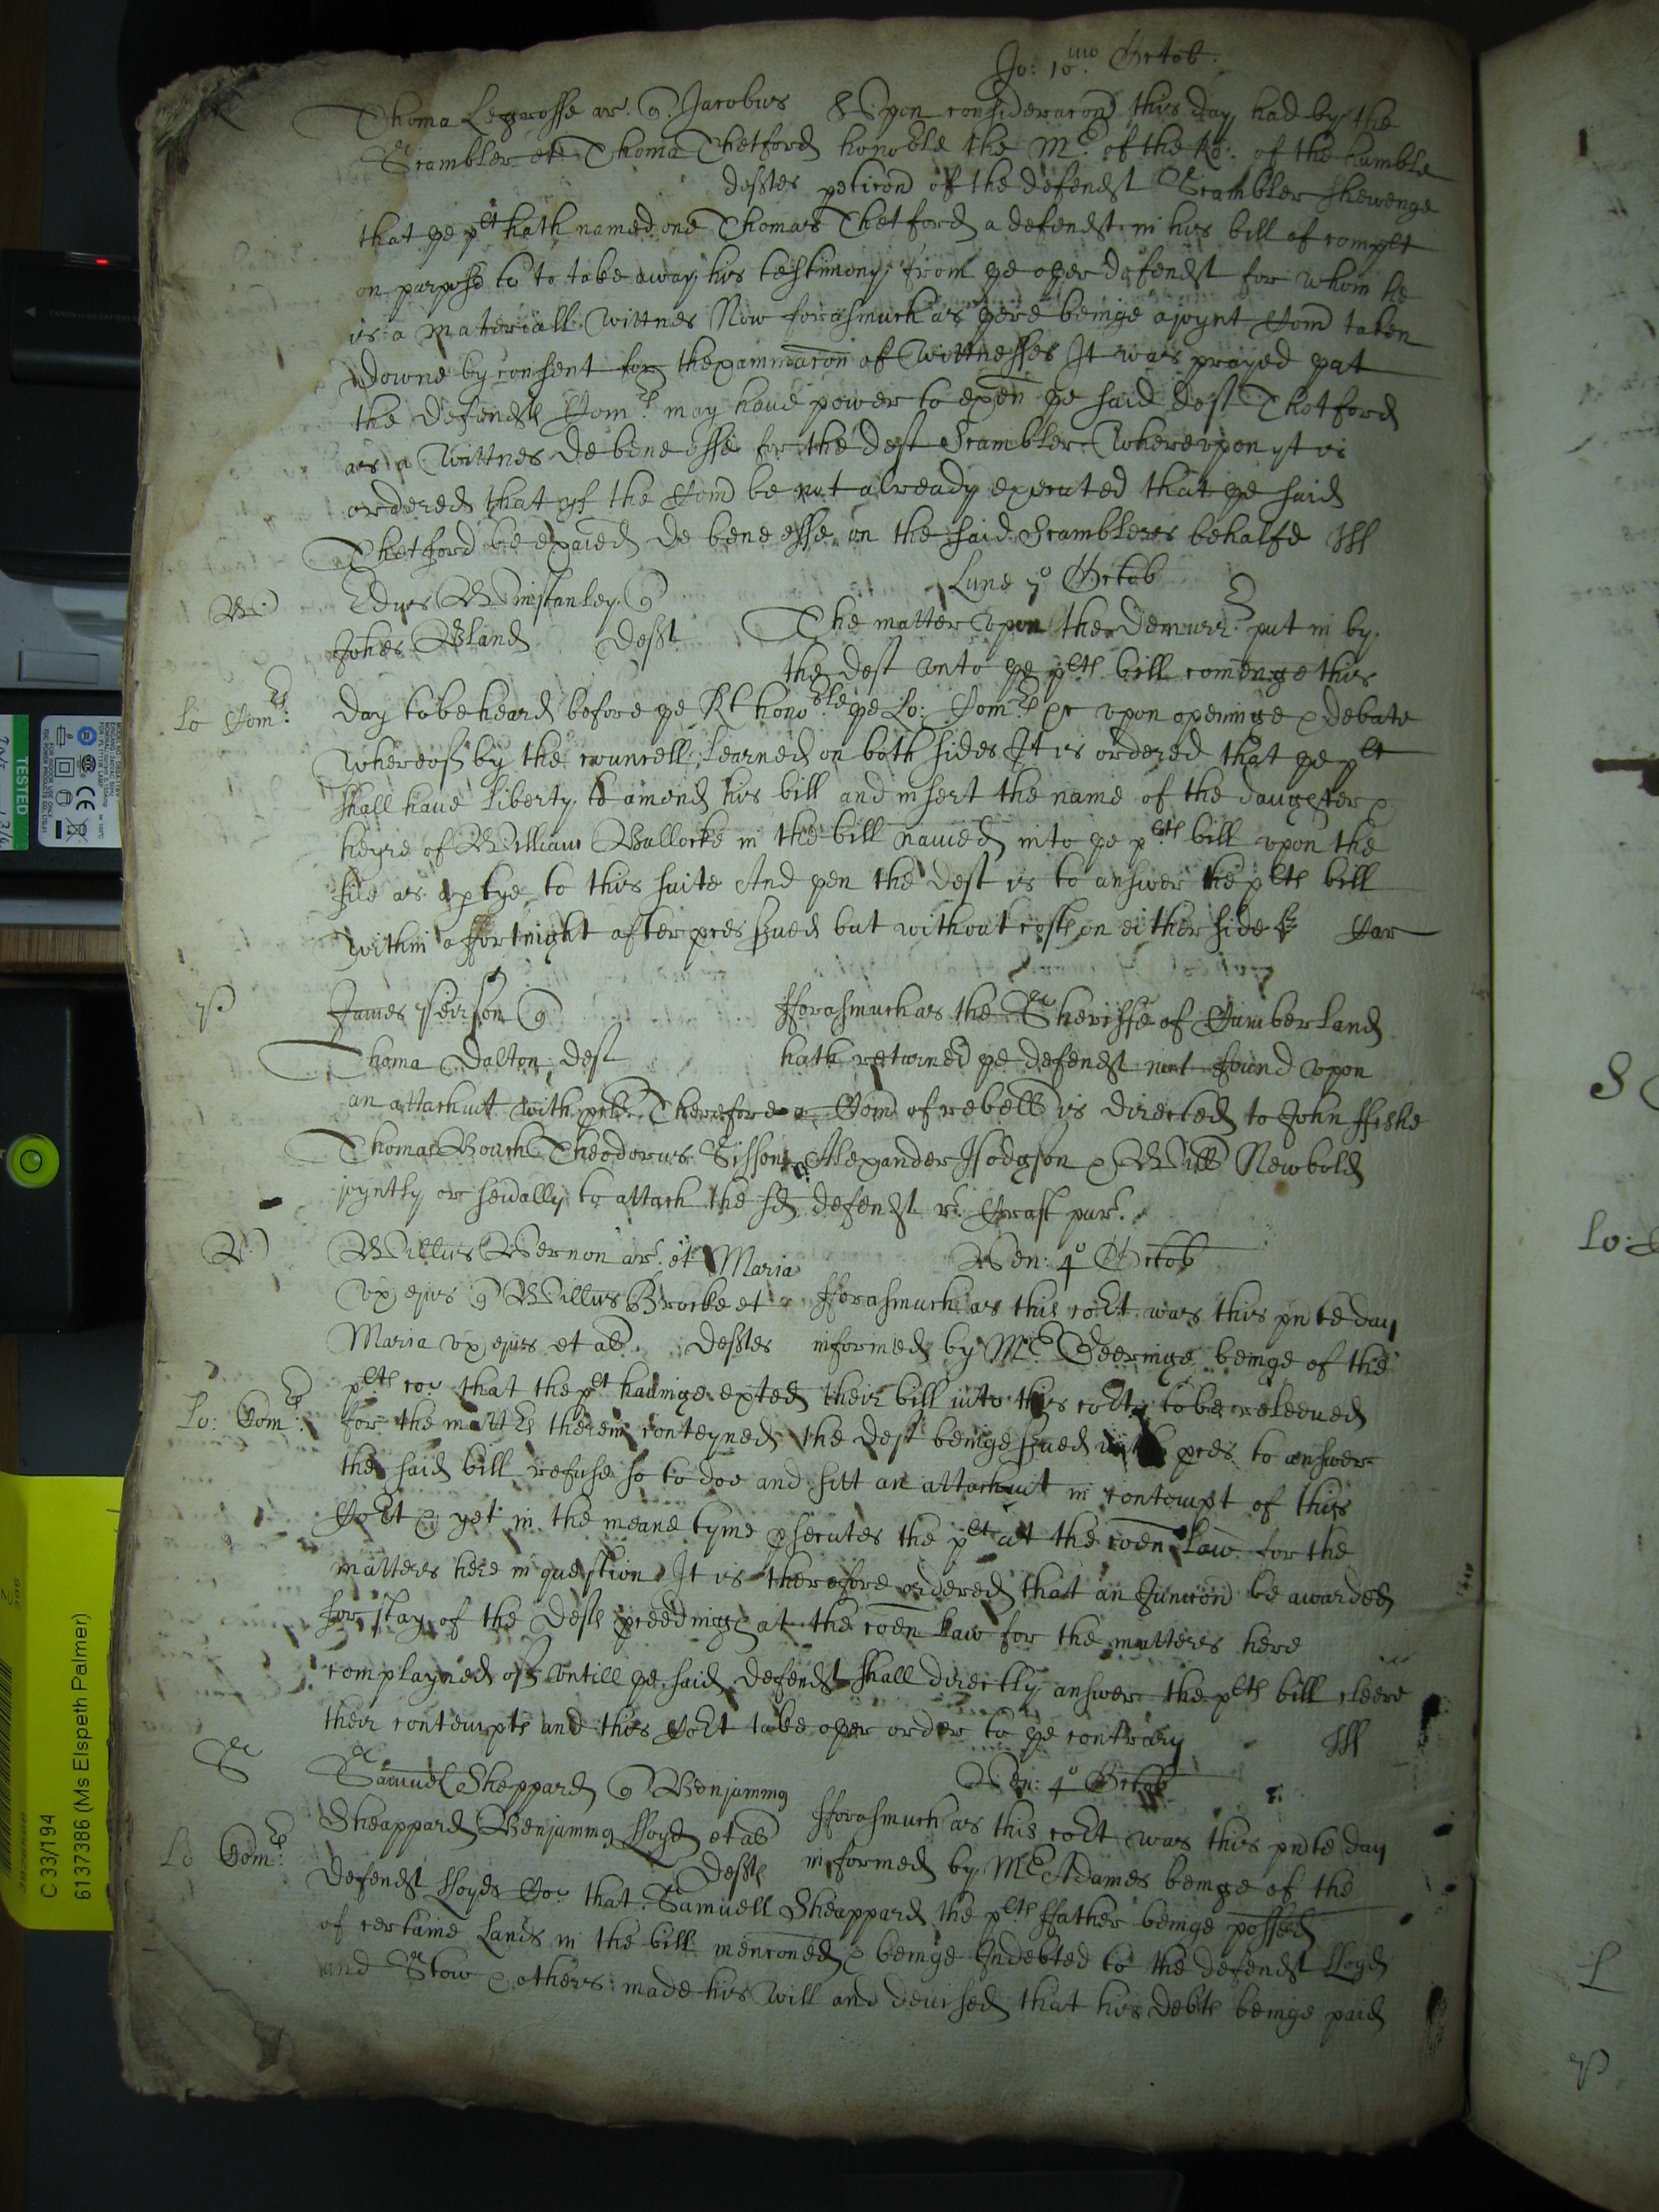 Jo: 10mo Octob.
Thoma Legrosse ar. q. Jacobus Upon consideracon this day had by the
Scambler et Thoma Thetford honoble the Mr of the Ro: of the humble
defftes peticon of the defendt Scambler shewenge
that ye plt hath named one Thomas Thetford a defendt in his bill of complt
on purpose to to take away his testimony from ye oyer defendt for whom he
is a materiall wittnes Now forasmuch as yere beinge a joynt Com taken
downe by consent for thexaminacon of Wittnesses It was prayed yat
the defendtes Comrs may haue power to exen ye said deft Thetford
as a Wittnes de bene esse for the deft Scambler Wherevpon yt is
ordered that yf the Com be not already executed that ye said
Thetford be exaied de bene esse on the said Scamblers behalfe
Lune 7o Octob
W Edrus Winstanley q
Johes Bland Defft The matter vpon the Demurr put in by
the deft vnto ye plts bill cominge this
Lo Comrs: day to be heard before ye Rt honoble ye Lo: Comrs &c vpon openinge & debate
whereof by the councell learned on both sides It is ordered that ye plt
shall haue liberty to amend his bill and insert the name of the daughter &
heyre of William Bullocke in the bill named into ye plts bill vpon the
file as a ptye to this suite And yen the deft is to answer the plts bill
within a fortnight after pces serued but without costs on either side Car
P James Peirson q fforasmuch as the Sheriffe of Cumberland
Thoma Dalton deft hath retorned ye defendt not found vpon
an attachmt with procl. Therefore a Com of rebell is directed to John ffishe
Thomas Bouch Theodorus Sisson Alexander Hodgson & Will Newbold
joyntly or seually to attach the sd defendt rt Crast pur.
V Willus Vernon ar. et Maria Ven: 4o Octob
vx ejus q Willus Brocke et fforasmuch as this cort was this pnte day
Maria vx ejus et al Defftes informed by Mr Geeringe beinge of the
plts co: that the plt hauinge exted their bill into this cort to be releeued
Lo: Comrs: for the matters therein conteyned the deft beinge serued with pces to answer
the said bill refuse so to doe and sitt an attachmt in contempt of this
Cort & yet in the meane tyme psecutes the plt at the coen Law for the
matters here in question It is therefore ordered that an Juncon be awarded
for stay of the defts pceedings at the coen Law for the matters here
complayned of vntill ye said defendt shall directly answer the plts bill cleere
their contempts and this Cort take oyer order to ye contrary
S Samuel Sheppard q Benjaming Ven: 4o Octob
Sheappard Benjaming lloyd et al fforasmuch as this cort was this pnte day
Lo Comrs: Deffts informed by Mr Adames beinge of the
Defendt lloyds Co: that Samuell Sheappard the plts ffather beinge possed
of certaine Lands in the bill menconed & beinge Indebted to the defendt Lloyd
and Stow & others made his Will and deuised that his debts beinge paid
Lo:
L
P
TESTED
C 33/194
6137386 (Ms Elspeth Palmer)